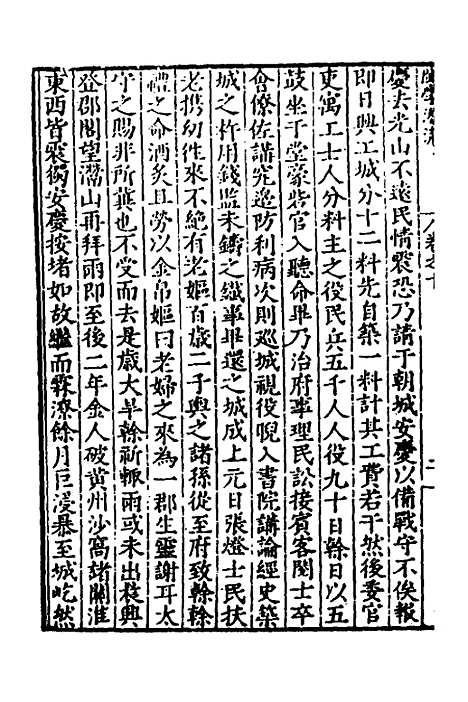 慶去光山不遠民情震恐乃請于朝城安慶以備戰守不俟報
即日興工城分十二料先自築一料計其工費若干然後委官
吏寓工士人分料主之役民兵五千人人役九十日榦日以五
鼓坐于堂濠砦官入聽命畢乃治府事理民訟接賓客閱士卒
會僚佐講究邊防利病次則巡城視役晚入書院講論經史築
城之杵用錢監未鑄之鐵事畢還之城成上元日張燈士民扶
老携幼徃來不絶有老嫗百歲二子輿之諸孫從至府致榦榦
禮之命酒炙且勞以金帛嫗曰老婦之來為一郡生靈謝耳太
守之賜非所冀也不受而去是歲大旱榦祈輙雨或未出晨興
登郡閣望灊山再拜雨即至後二年金人破黄州沙窩諸關淮
東西皆震獨安慶按堵如故繼而霖潦餘月巨浸暴至城屹然